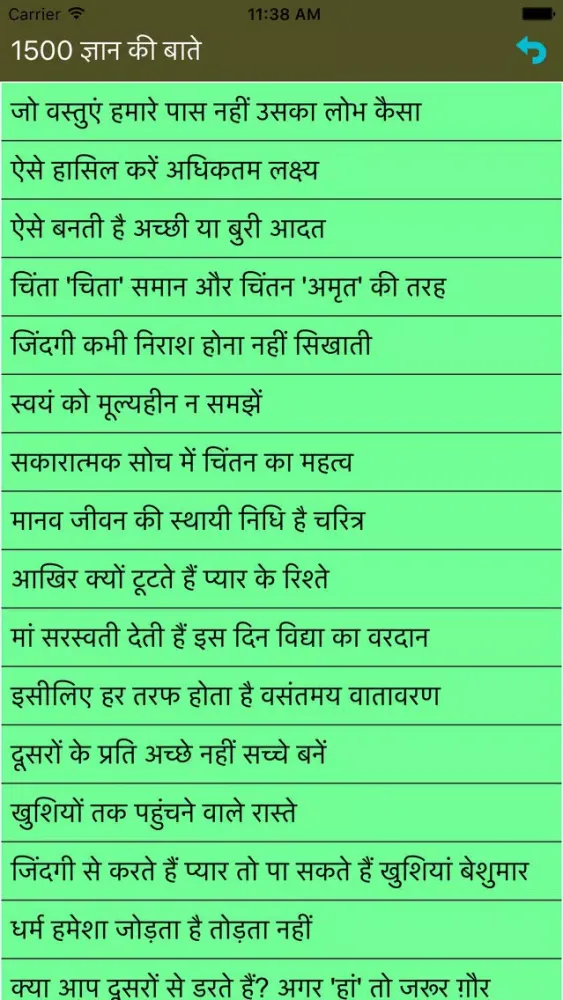 Carrier 11:38 AM
1500 ज्ञान की बाते
जो वस्तुएं हमारे पास नहीं उसका लोभ कैसा
ऐसे हासिल करें अधिकतम लक्ष्य
ऐसे बनती है अच्छी या बुरी आदत
चिंता 'चिता' समान और चिंतन 'अमृत' की तरह
जिंदगी कभी निराश होना नहीं सिखाती
स्वयं को मूल्यहीन न समझें
सकारात्मक सोच में चिंतन का महत्व
मानव जीवन की स्थायी निधि है चरित्र
आखिर क्यों टूटते हैं प्यार के रिश्ते
मां सरस्वती देती हैं इस दिन विद्या का वरदान
इसीलिए हर तरफ होता है वसंतमय वातावरण
दूसरों के प्रति अच्छे नहीं सच्चे बनें
खुशियों तक पहुंचने वाले रास्ते
जिंदगी से करते हैं प्यार तो पा सकते हैं खुशियां बेशुमार
धर्म हमेशा जोड़ता है तोड़ता नहीं
क्या आप दूसरों से डरते हैं? अगर 'हां' तो जरूर ग़ौर